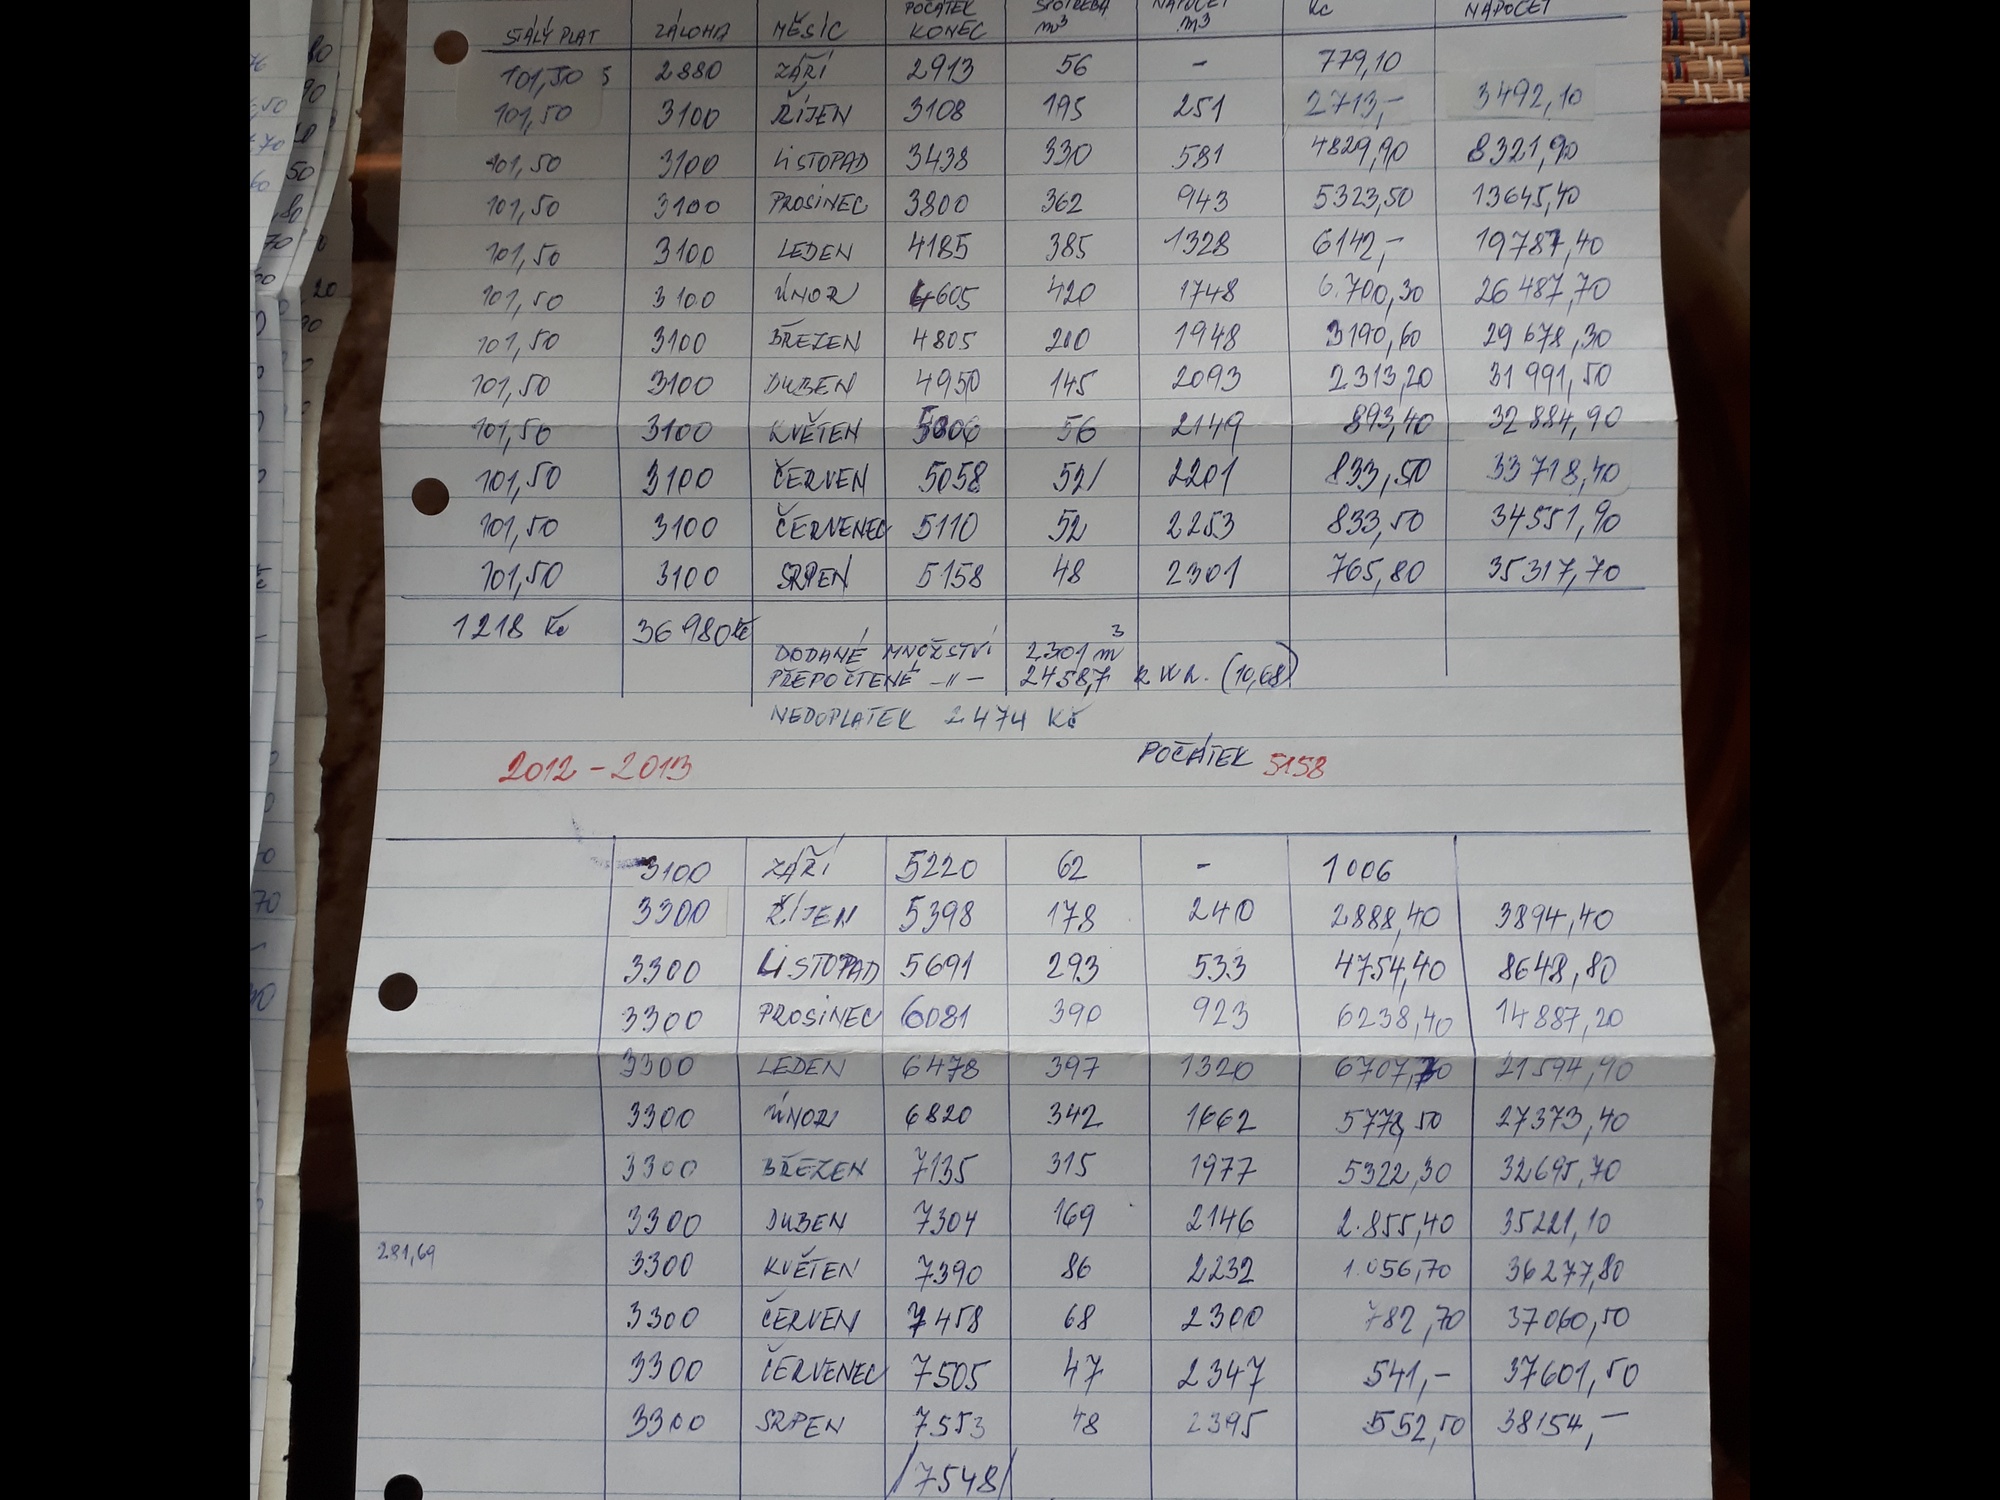 STÁLÝ PLAT ZÁLOHA MĚSÍC POČÁTEK KONEC SPOTŘEBA m³ NÁPOČET m³ Kč NÁPOČET
101,50 2880 ZÁŘÍ 2913 56 - 779,10
101,50 3100 ŘÍJEN 3108 195 251 2713,- 3492,10
101,50 3100 LISTOPAD 3438 330 581 4829,90 8321,90
101,50 3100 PROSINEC 3800 362 943 5323,50 13645,40
101,50 3100 LEDEN 4185 385 1328 6142,- 19787,40
101,50 3100 ÚNOR 4605 420 1748 6.700,30 26487,70
101,50 3100 BŘEZEN 4805 200 1948 3190,60 29678,30
101,50 3100 DUBEN 4950 145 2093 2313,20 31991,50
101,50 3100 KVĚTEN 5006 56 2149 893,40 32884,90
101,50 3100 ČERVEN 5058 52/ 2201 833,50 33718,40
101,50 3100 ČERVENEC 5110 52 2253 833,50 34551,90
101,50 3100 SRPEN 5158 48 2301 765,80 35317,70
1218 Kč 36980Kč
DODANÉ MNOŽSTVÍ 2301 m³
PŘEPOČTENÉ -11- 2458,7 (10,68)
NEDOPLATEK 2474 Kč
2012-2013 POČÁTEK 5158
3100 ZÁŘÍ 5220 62 - 1006
3300 ŘÍJEN 5398 178 240 2888,40 3894,40
3300 LISTOPAD 5691 293 533 4754,40 8648,80
3300 PROSINEC 6081 390 923 6238,40 14887,20
3300 LEDEN 6478 397 1320 6707,70 21594,90
3300 ÚNOR 6820 342 1662 5778,50 27373,40
3300 BŘEZEN 7135 315 1977 5322,30 32695,70
3300 DUBEN 7304 169 2146 2.855,40 35221,10
281,69 3300 KVĚTEN 7390 86 2232 1.056,70 36277,80
3300 ČERVEN 7458 68 2300 782,70 37060,50
3300 ČERVENEC 7505 47 2347 541,- 37601,50
3300 SRPEN 7553 48 2395 552,50 38154,-
/7548/